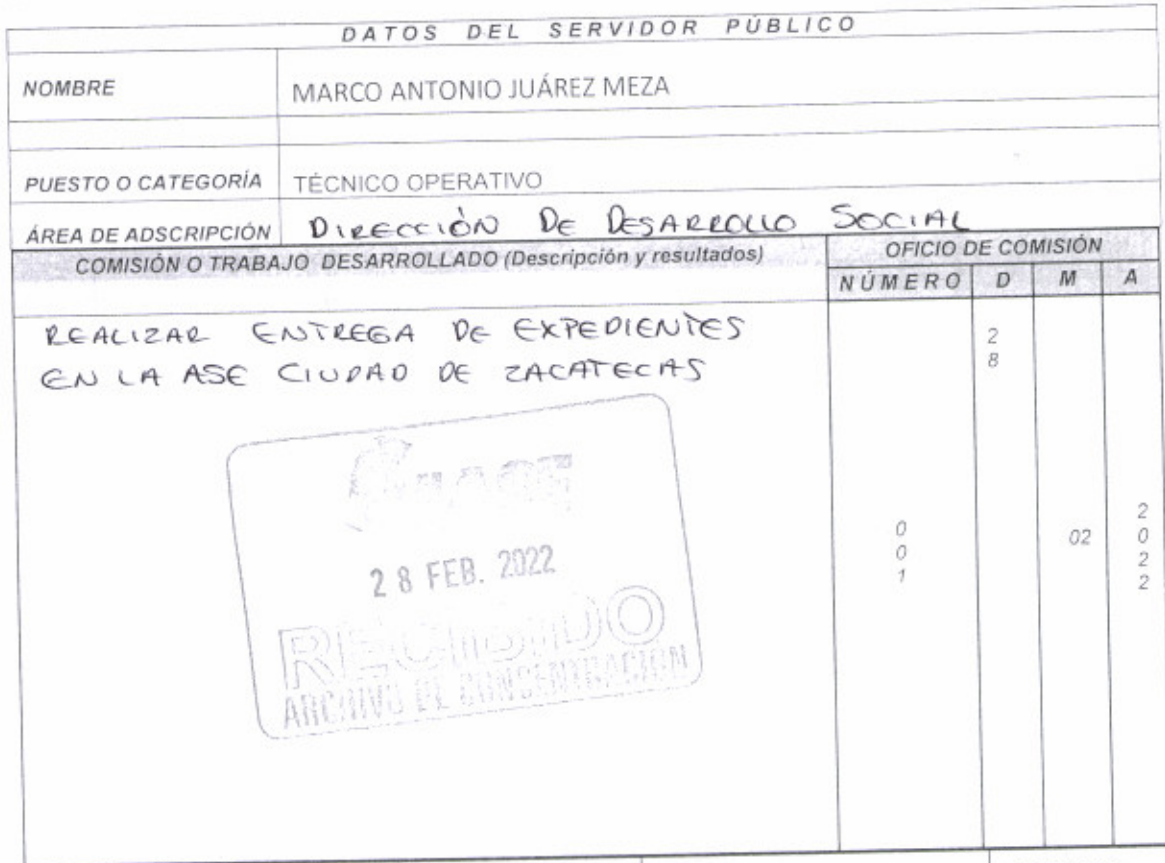 DATOS DEL SERVIDOR PÚBLICO
NOMBRE MARCO ANTONIO JUÁREZ MEZA
PUESTO O CATEGORÍA TÉCNICO OPERATIVO
ÁREA DE ADSCRIPCIÓN DIRECCIÓN DE DESARROLLO SOCIAL
COMISIÓN O TRABAJO DESARROLLADO (Descripción y resultados) OFICIO DE COMISIÓN
NÚMERO D M A
REALIZAR ENTREGA DE EXPEDIENTES
EN LA ASE CIUDAD DE ZACATECAS
28
001 02 2022
ASE
28 FEB. 2022
RECIBIDO
ARCHIVO DE CONCENTRACION